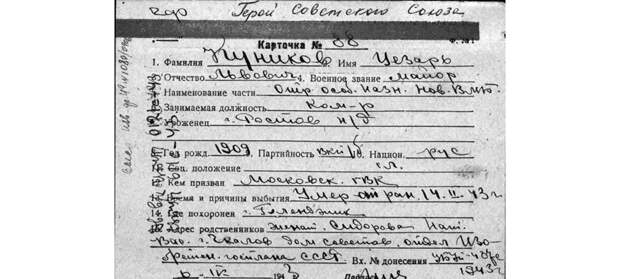 кдр Герой Советского Союза
Карточка № 88
1. Фамилия Куников 2. Имя Цезарь
Отчество Львович 4. Военное звание майор
Наименование части Отр. особ. назн. Нов. ВМБ
Занимаемая должность Ком-р
Уроженец г. Ростов н/Д
Год рожд. 1909. Партийность ВКП/б Национ. рус
Соц. положение сл.
Кем призван Московск. ГВК
Время и причины выбытия Умер от ран 14. II. 43 г
14. Где похоронен г. Геленджик
Адрес родственников жена Сидорова Нат.
Вас. г. Чкалов дом советов, отдел Изо-
Госплана СССР Вх. № донесения
1943 г